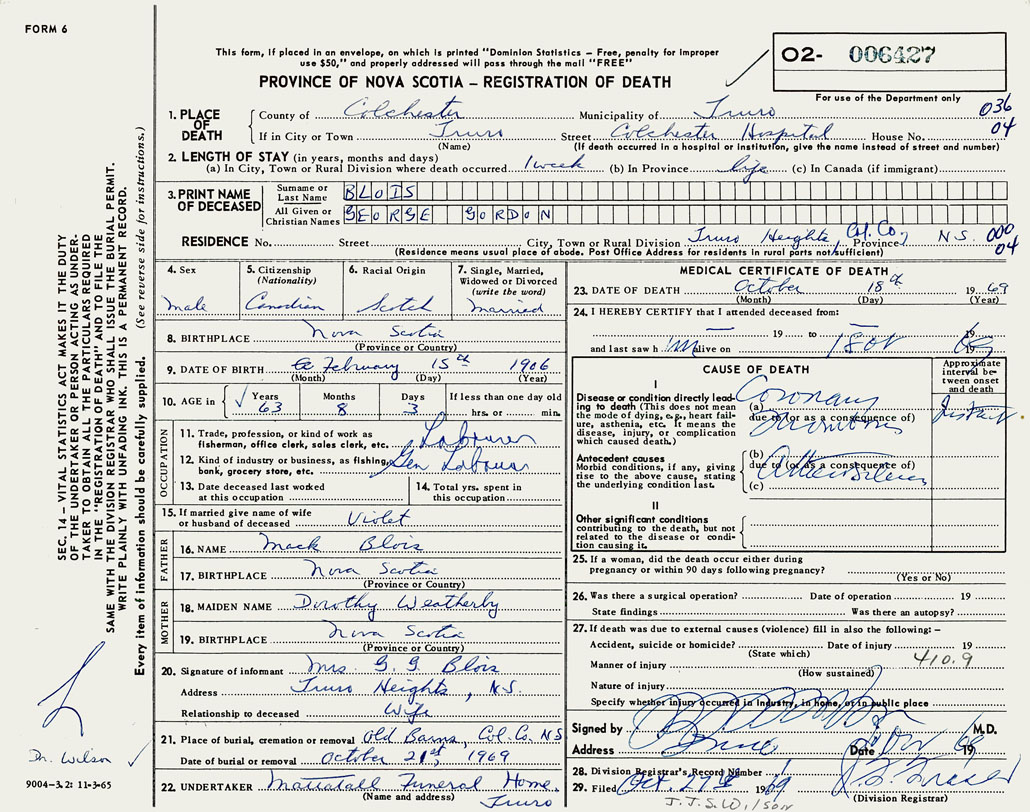 FORM 6
This form, if placed in an envelope, on which is printed "Dominion Statistics – Free, penalty for improper
use $50," and properly addressed will pass through the mail "FREE"
PROVINCE OF NOVA SCOTIA – REGISTRATION OF DEATH
O2- 006427
For use of the Department only
1. PLACE OF DEATH
County of Colchester Municipality of Truro 036
If in City or Town Truro Street Colchester Hospital House No. 04
(Name) (If death occurred in a hospital or institution, give the name instead of street and number)
2. LENGTH OF STAY (in years, months and days)
(a) In City, Town or Rural Division where death occurred 1 week (b) In Province life (c) In Canada (if immigrant)
3. PRINT NAME OF DECEASED
Surname or Last Name BLOIS
All Given or Christian Names GEORGE GORDON
RESIDENCE No. Street City, Town or Rural Division Truro Heights, Col. Co., Province N.S. 000
04
(Residence means usual place of abode. Post Office Address for residents in rural parts not sufficient)
4. Sex
male
5. Citizenship
(Nationality)
Canadian
6. Racial Origin
Scotch
7. Single, Married,
Widowed or Divorced
(write the word)
married
8. BIRTHPLACE Nova Scotia
(Province or Country)
9. DATE OF BIRTH February 15th 1906
(Month) (Day) (Year)
10. AGE in Years 63 Months 8 Days 3 If less than one day old
hrs. or min.
OCCUPATION
11. Trade, profession, or kind of work as
fisherman, office clerk, sales clerk, etc. Labourer
12. Kind of industry or business, as fishing,
bank, grocery store, etc. Gen Labour
13. Date deceased last worked
at this occupation
14. Total yrs. spent in
this occupation
15. If married give name of wife
or husband of deceased Violet
FATHER
16. NAME Mack Blois
17. BIRTHPLACE Nova Scotia
(Province or Country)
MOTHER
18. MAIDEN NAME Dorothy Weatherby
19. BIRTHPLACE Nova Scotia
(Province or Country)
20. Signature of informant Mrs. G. G. Blois
Address Truro Heights, N.S.
Relationship to deceased Wife
21. Place of burial, cremation or removal Old Barns, Col. Co. NS
Date of burial or removal October 21st, 1969
22. UNDERTAKER Mattatall Funeral Home,
(Name and address) Truro
MEDICAL CERTIFICATE OF DEATH
23. DATE OF DEATH October 18th 1969
(Month) (Day) (Year)
24. I HEREBY CERTIFY that I attended deceased from:
— 19 to — 19
and last saw him alive on 18 Oct 1969
CAUSE OF DEATH
Approximate
interval be-
tween onset
and death
I
Disease or condition directly lead-
ing to death (This does not
mean the mode of dying, e.g., heart fail-
ure, asthenia, etc. It means the
disease, injury, or complication
which caused death.)
(a) Coronary
due to (or as a consequence of)
Thrombosis
Instant
Antecedent causes
Morbid conditions, if any, giving
rise to the above cause, stating
the underlying condition last.
(b)
due to (or as a consequence of)
(c)
II
Other significant conditions
contributing to the death, but not
related to the disease or condi-
tion causing it.
25. If a woman, did the death occur either during
pregnancy or within 90 days following pregnancy?
(Yes or No)
26. Was there a surgical operation? Date of operation 19
State findings Was there an autopsy?
27. If death was due to external causes (violence) fill in also the following: –
Accident, suicide or homicide? Date of injury 19
(State which) 410.9
Manner of injury
(How sustained)
Nature of injury
Specify whether injury occurred in industry, in home, or in public place
Signed by M.D.
Address Truro Date 19
28. Division Registrar's Record Number
29. Filed Oct. 27th 1969
(Division Registrar)
SEC. 14 – VITAL STATISTICS ACT MAKES IT THE DUTY
OF THE UNDERTAKER OR PERSON ACTING AS UNDER-
TAKER TO OBTAIN ALL THE PARTICULARS REQUIRED
IN THE "REGISTRATION OF DEATH" AND TO FILE THE
SAME WITH THE DIVISION REGISTRAR WHO SHALL ISSUE THE BURIAL PERMIT.
WRITE PLAINLY WITH UNFADING INK. THIS IS A PERMANENT RECORD.
Every item of information should be carefully supplied. (See reverse side for instructions.)
Dr. Wilson
9004-3.2: 11-3-65